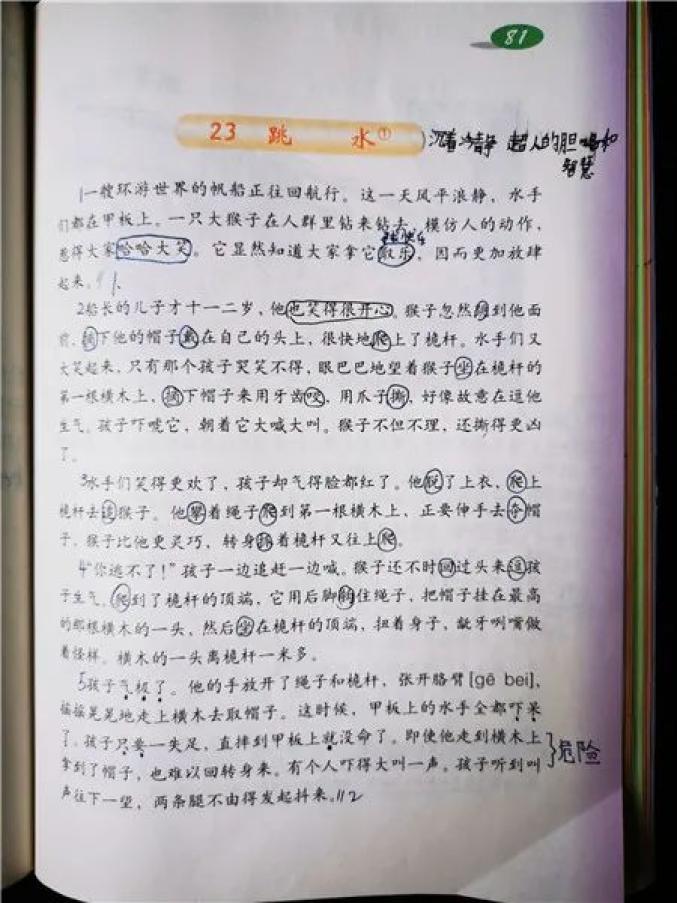 81
23 跳 水① 沉着冷静 超人的胆和
智慧
1一艘环游世界的帆船正往回航行。这一天风平浪静，水手
们都在甲板上。一只大猴子在人群里钻来钻去，模仿人的动作，
惹得大家哈哈大笑。它显然知道大家拿它取乐，因而更加放肆
起来。
2船长的儿子才十一二岁，他也笑得很开心。猴子忽然跳到他面
前，摘下他的帽子戴在自己的头上，很快地爬上了桅杆。水手们又
大笑起来，只有那个孩子哭笑不得，眼巴巴地望着猴子坐在桅杆的
第一根横木上，摘下帽子来用牙齿咬，用爪子撕，好像故意在逗他
生气。孩子吓唬它，朝着它大喊大叫。猴子不但不理，还撕得更凶
了。
3水手们笑得更欢了，孩子却气得脸都红了。他脱了上衣，爬上
桅杆去追猴子。他攀着绳子爬到第一根横木上，正要伸手去夺帽
子，猴子比他更灵巧，转身抓着桅杆又往上爬。
4“你逃不了！”孩子一边追赶一边喊。猴子还不时回过头来逗孩
子生气。爬到了桅杆的顶端，它用后脚钩住绳子，把帽子挂在最高
的那根横木的一头，然后坐在桅杆的顶端，扭着身子，龇牙咧嘴做
着怪样。横木的一头离桅杆一米多。
5孩子气极了。他的手放开了绳子和桅杆，张开胳臂[gē bei]，
摇摇晃晃地走上横木去取帽子。这时候，甲板上的水手全都吓呆
了。孩子只要一失足，直摔到甲板上就没命了。即使他走到横木上 危险
拿到了帽子，也难以回转身来。有个人吓得大叫一声。孩子听到叫
声往下一望，两条腿不由得发起抖来。112